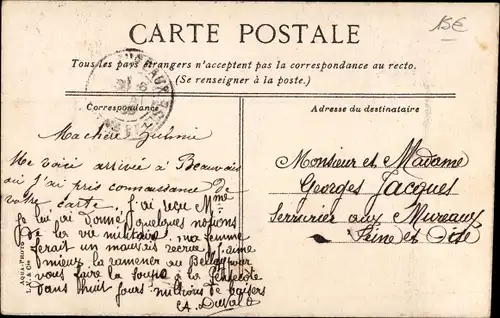 CARTE POSTALE
15€
Tous les pays étrangers n'acceptent pas la correspondance au recto.
(Se renseigner à la poste.)
Correspondance
Ma chère
Me voici arrivée à Beauvais
où j'ai pris connaissance de
votre carte. j'ai reçu Mme
je lui ai donné quelques notions
de la vie militaire. ma femme
ferait un mauvais recrue j'aime
mieux la ramener au Bellay pour
vous faire la soupe à la Pentecôte
dans huit jours millions de baisers
A. Duval
AQUA-PHOTO
L.V. & Cie
Adresse du destinataire
Monsieur et Madame
Georges Jacques
Serrurier aux Mureaux
Seine et Oise